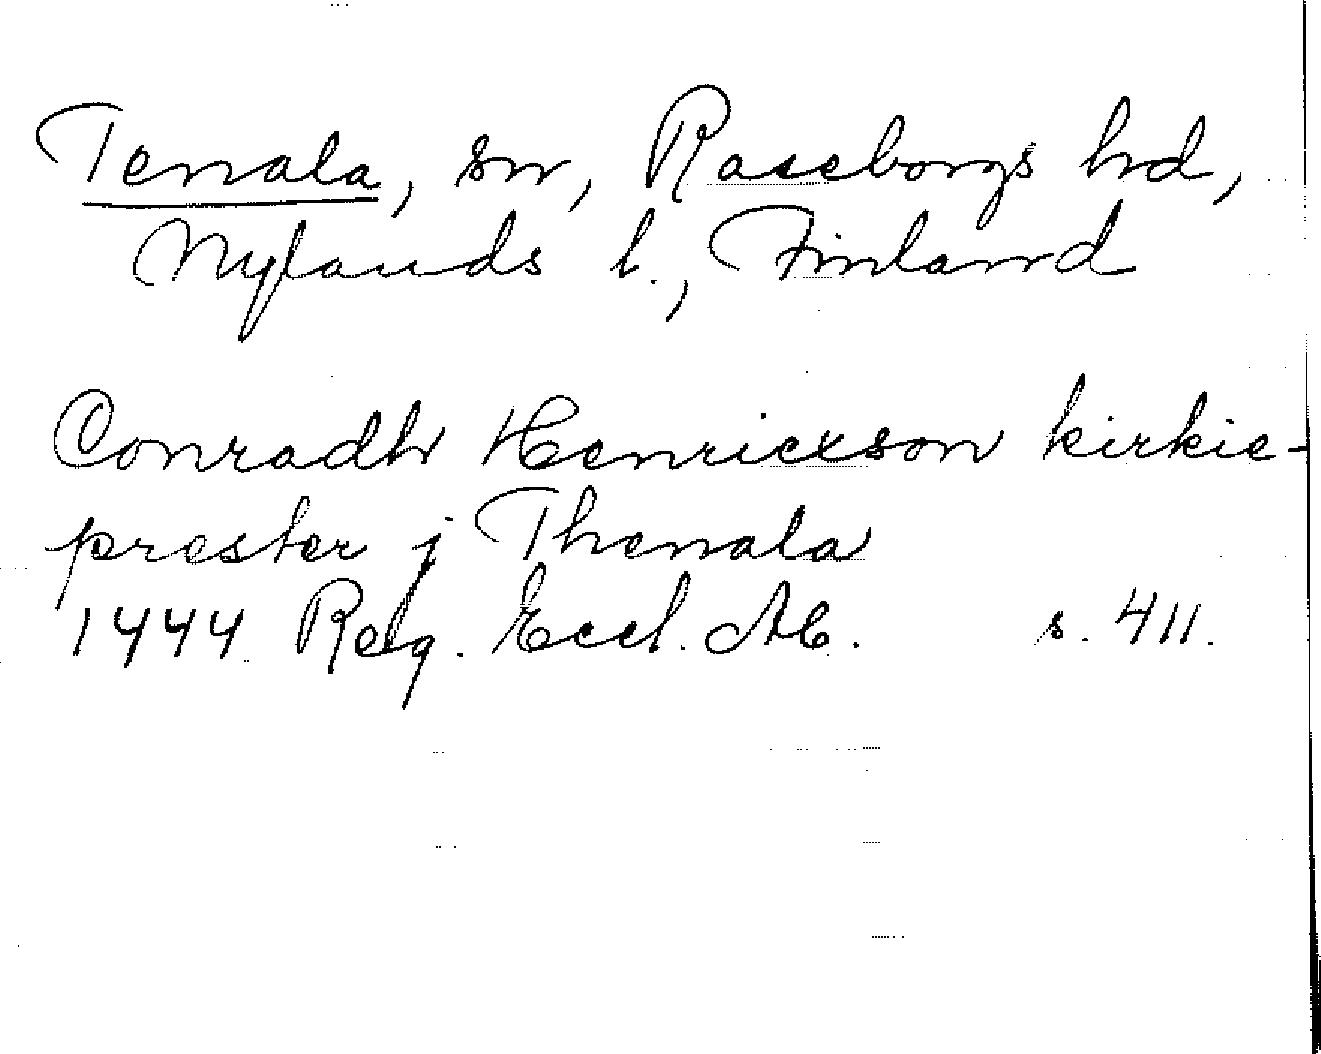 Tenala, sn, Raseborgs hd,
Nylands l., Finland
Conradh Henricxson kirkie-
prester j Thenala
1444 Reg. Eccl. Ab. s. 411.